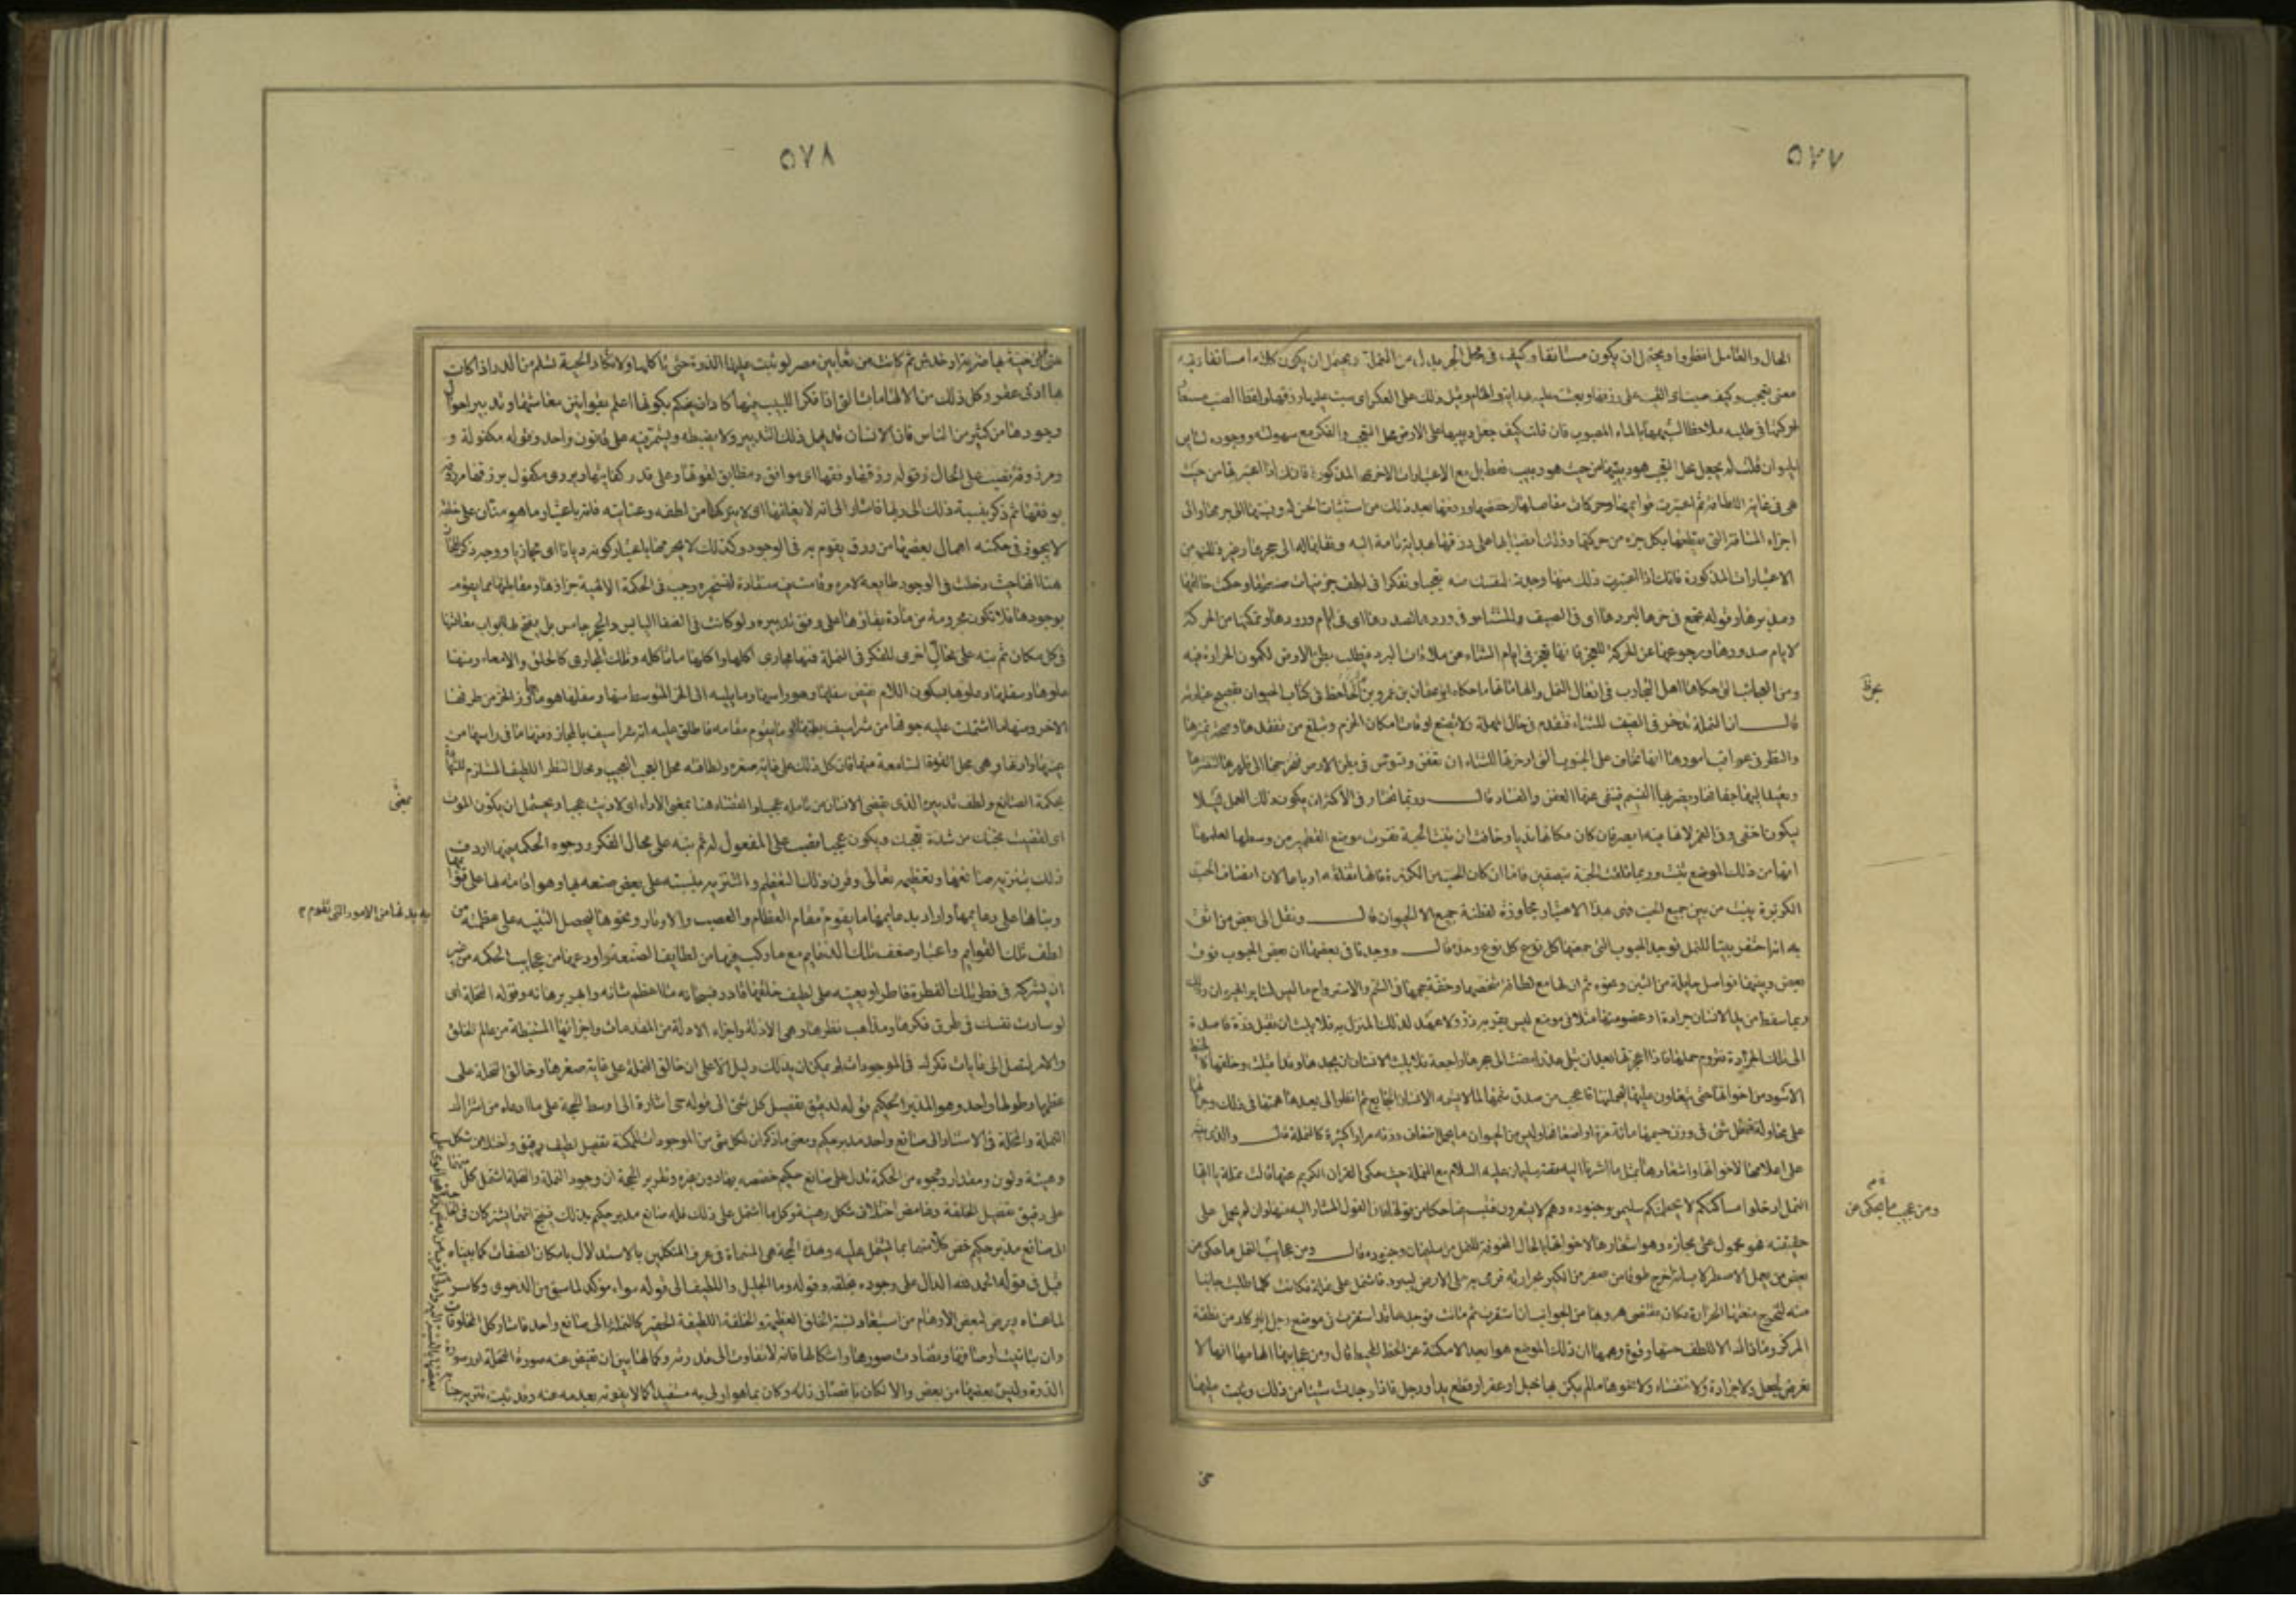 ٥٧٧
الحال والعامل انظروا ويحتمل ان يكون مستانفا وكيف فى محل الجر بدل من النملة ويحتمل ان يكون كلاما مستانفا وفيه
معنى التعجب وكيف صبت اى القيت على رزقها وبعثت عليه بهداية والهام وقيل ذلك على العكس اى صبت عليها رزقها ولفظ الصب مستعار
لحركتها فى طلبه ملاحظا لشبهها بالماء المصبوب فان قلت كيف جعل دبيبها على الارض محل التعجب والفكر مع سهولته ووجوده لسائر
الحيوان قلت لم يجعل محل التعجب هو دبيبها من حيث هو دبيب فقط بل مع الاعتبارات الاخرى المذكورة فانك اذا اعتبرتها من حيث
هى فى غاية اللطافة ثم اعتبرت قوائمها وحركات مفاصلها وخفضها ورفعها بعد ذلك من استثبات الحس له ونسبتها الى جرمها والى
اجزاء المسافة التى تقطعها بكل جزء من حركتها وذلك انصبابها على رزقها بهداية تامة اليه ونقلها له الى جحرها وغير ذلك من
الاعتبارات المذكورة فانك اذا اعتبرت ذلك منها وجدت لنفسك منه تعجبا وتفكرا فى لطف جزئيات صنعتها وحكمة خالقها
ومدبرها وقوله تجمع فى حرها لبردها اى فى الصيف للشتاء وفى وردها لصدرها اى فى ايام ورودها وتمكنها من الحركة
لايام صدورها ورجوعها عن الحركة للعجز فانها تعجز فى ايام الشتاء عن ملاقات البرد فتطلب بطن الارض لكمون الحرارة فيه
ومن العجائب التى حكاها اهل التجارب فى افعال النمل والهاماتها ما حكاه ابو عثمان بن عمرو بن بحر الجاحظ فى كتاب الحيوان بفصيح عبارته
قال ان النملة تدخر فى الصيف للشتاء فتقدم فى حال المهلة ولا تضيع اوقات امكان الحزم وتبلغ من تفقدها وصحة تمييزها
والنظر فى عواقب امورها انها تخاف على الحبوب التى ادخرتها للشتاء ان تعفن وتسوس فى بطن الارض فتخرجها الى ظهرها لتنشرها
وتعيد اليها جفافها ويضربها النسيم فينفى عنها العفن والفساد قال وربما تختار فى الاكثر ان يكون ذلك العمل ليلا
ليكون اخفى وفى القمر لانها فيه ابصر فان كان مكانها نديا وخافت ان تنبت الحبة نقرت موضع القطمير من وسطها لعلمها
انها من ذلك الموضع تنبت وربما فلقت الحبة نصفين فاما ان كان الحب من الكزبرة فانها تفلقه ارباعا لان انصاف الحب
الكزبرة ينبت من بين جميع الحب فهى بهذا الاعتبار مجاوزة لفطنة جميع الحيوان قال ونقل الى بعض من اثق
به انه احتفر بيتا للنمل فوجد الحبوب التى جمعتها كل نوع وحده قال ووجدنا فى بعضها ان بعض الحبوب فوق
بعض وبينها فواصل حايلة من التبن ونحوه ثم ان لها مع لطافة شخصها وخفة حجمها فى الشم والاسترواح ما ليس لسائر الحيوان وذلك
ربما سقط من يد الانسان جرادة او عضو منها مثلا فى موضع ليس بقربه ذر ولا عهد لذلك المنزل به فلا يلبث ان تقبل ذرة قاصدة
الى تلك الجرادة فتروم حملها فاذا اعجزتها بعد ان تبلى عذرا مضت الى جحرها راجعة فلا يلبث الانسان ان يجدها وقد اقبلت وخلفها كالخيط
الاسود من اخواتها حتى يتعاون عليها ليحملنها فاعجب من صدق شمها لما لا يشمه الانسان الجائع ثم انظر الى بعد همتها فى ذلك وجراتها
على محاولة نقل شئ فى وزن جسمها مائة مرة او اضعافها وليس من الحيوان ما يحمل اضعاف وزنه مرارا كثيرة كالنملة قال والذى ينبه
على اعلامها لاخواتها واشعارها بمثل ما اشرنا اليه قصة سليمان عليه السلام مع النملة حيث حكى القران الكريم عنها قالت نملة يا ايها
النمل ادخلوا مساكنكم لا يحطمنكم سليمن وجنوده وهم لا يشعرون فتبسم ضاحكا من قولها فان القول المشار اليه منها وان لم يحمل على
حقيقته فهو محمول على مجازه وهو اشعارها لاخواتها بالحال المخوفة للنمل من سليمان وجنوده قال ومن عجائب النمل ما حكى عن
بعض من يعمل الاصطرلاب انه اخرج طوقا من صفر من الكير بحرارته فرمى به على الارض ليبرد فاشتمل على نملة فكانت كلما طلبت جانبا
منه لتخرج منعتها الحرارة فكان مقتضى هروبها من الجوانب ان استقرت ثم ماتت فوجدها قد استقرت فى موضع رجل البركار من نقطة
المركز وما ذاك الا للطف حسها وقوة وهمها ان ذلك الموضع هو ابعد الامكنة عن الخط المحيط قال ومن عجائبها الهامها انها لا
تعرض لجعل ولا جرادة ولا خنفساء ولا نحوها ما لم يكن بها خبل او عقر او قطع يد او رجل فاذا وجدت شيئا من ذلك وثبت عليها
بحر
ومن عجيب ما يحكى عن
حتى
٥٧٨
حتى لو ان حية بها ضربة او خدش ثم كانت من ثعابين مصر لوثبت عليها الذرة حتى تاكلها ولا تكاد الحية تسلم من الذر اذا كان
بها ادنى عقر وكل ذلك من الالهامات التى اذا فكر اللبيب فيها كاد ان يحكم بكونها اعلم بقوانين معاشها وتدبير احوال
وجودها من كثير من الناس فان الانسان قد يهمل ذلك التدبير ولا يضبطه ويستمر فيه على قانون واحد وقوله مكفولة و
ومرزوقة نصب على الحال وقوله رزقها وفقها اى موافق ومطابق لقوتها وعلى قدر كفايتها ويروى مكفول برزقها مرزوقة
بوفقها ثم ذكر نسبة ذلك الى ربها فاشار الى انه لا يغفلها اى لا يتركها من لطفه وعنايته فانه باعتبار ما هو منان على خلقه
لا يجوز فى حكمته اهمال بعضها من رزق يقوم به فى الوجود وكذلك لا يحرمها باعتبار كونه ديانا اى مجازيا ووجه ذكر المجازاة
هنا انها حيث دخلت فى الوجود طايعة لامره وقامت فيه منقادة لتسخيره وجب فى الحكمة الالهية جزاؤها ومقابلتها بما يقوم
بوجودها فلا تكون محرومة من مادة بقاؤها على وفق تدبيره ولو كانت فى الصفا اليابس والحجر جامس بل يفتح لها ابواب معاشها
فى كل مكان ثم نبه على محال اخرى للفكر فى النملة فمنها مجارى اكلها واكلها ما تاكله وتلك المجارى كالحلق والامعاء ومنها
علوها وسفلها وعلوها بسكون اللام نقيض سفلها وهو راسها وما يليه الى الجزء المتوسط منها وسفلها هو ما جاوز الجزء من طرفها
الاخر ومنها ما اشتملت عليه جوفها من شراسيف بطنها او ما يقوم مقامه فاطلق عليه انه شراسيف بالمجاز ومنها ما فى راسها من
عينها واذنها وهى محل القوة السامعة منها فان كل ذلك على غاية صغره ولطافته محل العجب العجيب ومحال النظر اللطيف المستلزم للشهادة
بحكمة الصانع ولطف تدبيره الذى يقضى الانسان من تامله عجبا والقضاء هنا بمعنى الاداء اى لاديت عجبا ويحتمل ان يكون الموت
اى لقضيت نحبك من شدة تعجبك ويكون عجبا نصب على المفعول له ثم نبه على محال الفكر ووجوه الحكمة فيها اردف
ذلك بتنزيه صانعها وتعظيمه تعالى وقرن ذلك التعظيم والتنزيه بنسبته على بعض صنعه بها وهو اقامته لها على قوائمها
وبناها على دعايمها واراد بدعايمها ما يقوم مقام العظام والعصب والاوتار ونحوها ليحصل التنبيه على عظمته من
لطف تلك القوايم واعتبار ضعف تلك الدعايم مع ما ركب فيها من لطايف الصنعة واودعها من عجايب الحكمة من غير
ان يشركه فى فطر تلك الفطرة فاطر او يعينه على لطيف خلقها قادر فسبحانه ما اعظم شانه وابهر برهانه وقوله النحلة اى
لو سارت نفسك فى طرق فكرها ومذاهب نظرها وهى الادلة واجزاء الادلة من المقدمات واجزائها المستنبطة من عالم الخلق
والامر لتصل الى غايات فكرك فى الموجودات لم يمكن ان يدلك دليل الا على ان خالق النملة على غاية صغرها وخالق النخلة على
عظمها وطولها واحد وهو المدبر الحكيم وقوله لدقيق تفصيل كل شئ الى قوله حى اشارة الى اوسط الحجة على ما ادعاه من اشتراك
النملة والنخلة فى الاستناد الى صانع واحد مدبر حكيم ومعنى ما ذكر ان لكل شئ من الموجودات الممكنة تفصيل لطيف دقيق واختلاف شكل
وهيئة ولون ومقدار ووجوه من الحكمة تدل على صانع حكيم خصصه بها دون غيره وتقرير الحجة ان وجود النملة والنخلة اشتمل كل منهما
على دقيق تفصيل الخلقة وغامض اختلاف شكل وهيئة وكل ما اشتمل على ذلك فله صانع مدبر حكيم بذلك ينتج انهما يشتركان فى الحاجة
الى صانع مدبر حكيم خص كلا منهما بما يشتمل عليه وهذه الحجة هى المسماة فى عرف المتكلمين بالاستدلال بامكان الصفات كما بيناه
قبل فى قوله الحمد لله الدال على وجوده بخلقه وقوله وما الجليل واللطيف الى قوله سواء مؤكد لما سبق من الدعوى وكاسر
لما عساه يعرض لبعض الاوهام من استبعاد نسبة الخلق العظيمة والخلقة اللطيفة الحقير كالنملة الى صانع واحد فاشار كل المخلوقات
وان تباينت اوصافها وتضادت صورها واشكالها فانه لا تفاوت الى قدرته وكمالها بين ان تفيض عنه صورة النخلة او صورة
الذرة وليس بعضها من بعض والا لكان ناقصا فى ذاته وكان بما هو اولى به مستفيدا كمالا يفوته بعدمه عنه وقد ثبت تنزيه جناب
بمعنى
به بدنها من الامور التى تقوم